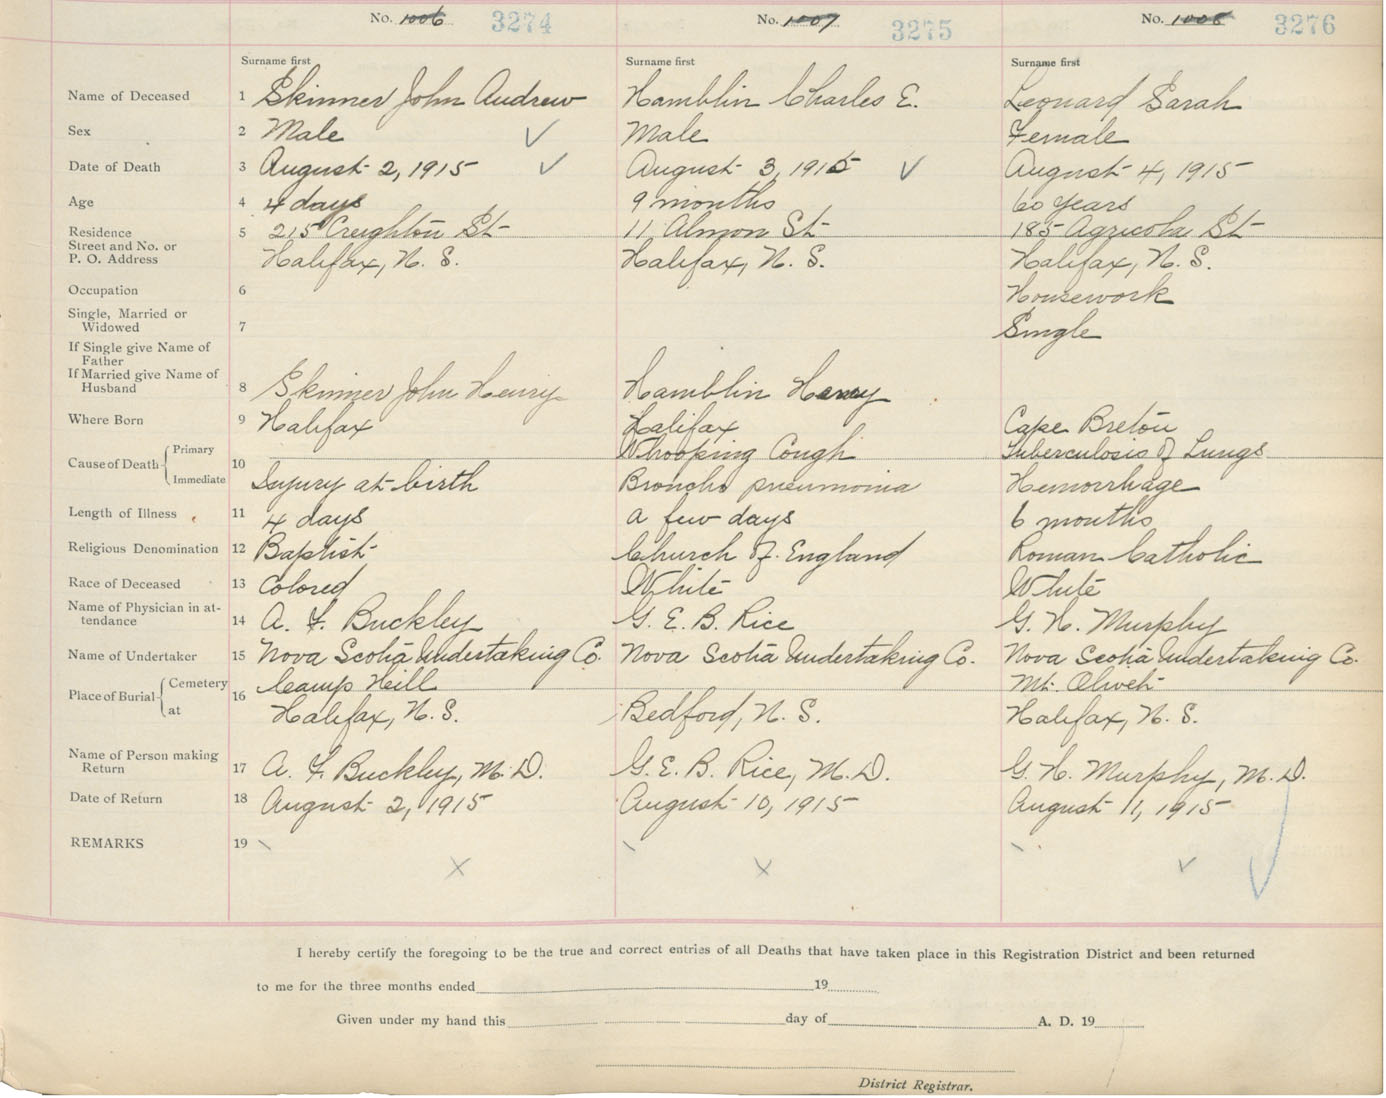 No. 1006 3274 No. 1007 3275 No. 1008 3276
Surname first Surname first Surname first
Name of Deceased 1 Skinner John Andrew Hamblin Charles E. Leonard Sarah
Sex 2 Male Male Female
Date of Death 3 August 2, 1915 August 3, 1915 August 4, 1915
Age 4 4 days 9 months 60 years
Residence 5 215 Creighton St 11 Almon St 185 Agricola St
Street and No. or
P. O. Address Halifax, N. S. Halifax, N. S. Halifax, N. S.
Occupation 6 Housework
Single, Married or
Widowed 7 Single
If Single give Name of
Father
If Married give Name of
Husband 8 Skinner John Henry Hamblin Henry
Where Born 9 Halifax Halifax Cape Breton
Cause of Death Primary 10 Whooping Cough Tuberculosis of Lungs
Immediate Injury at birth Broncho pneumonia Hemorrhage
Length of Illness 11 4 days a few days 6 months
Religious Denomination 12 Baptist Church of England Roman Catholic
Race of Deceased 13 Colored White White
Name of Physician in at-
tendance 14 A. F. Buckley G. E. B. Rice G. H. Murphy
Name of Undertaker 15 Nova Scotia Undertaking Co. Nova Scotia Undertaking Co. Nova Scotia Undertaking Co.
Place of Burial Cemetery 16 Camp Hill Mt. Olivet
at Halifax, N. S. Bedford, N. S. Halifax, N. S.
Name of Person making
Return 17 A. F. Buckley, M. D. G. E. B. Rice, M. D. G. H. Murphy, M. D.
Date of Return 18 August 2, 1915 August 10, 1915 August 11, 1915
REMARKS 19
I hereby certify the foregoing to be the true and correct entries of all Deaths that have taken place in this Registration District and been returned
to me for the three months ended 19
Given under my hand this day of A. D. 19
District Registrar.